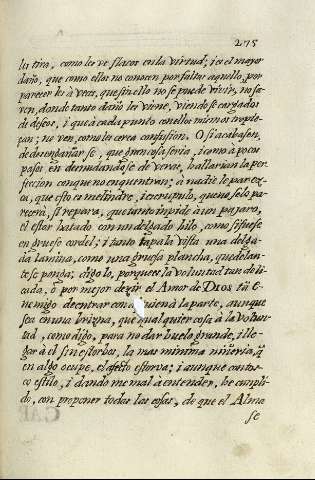 275
les tiro, como les ve flacos en la virtud; i es el mayor
daño, que como ellos no conocen por faltar aquello, por
parecer les à veces, que sin ello no se puede vivir, no sa-
ven, donde tanto daño les viene, viendo se cargados
de deseos, i que à cada punto con ellos mismos tropie-
zan; no ven, como les cerca confusion. O si acabasen,
de desengañar se, que gran cosa seria, i como à pocos
pasos en desnudandose de veras, hallarian la per-
feccion con que no enquentran; à nadie le parez-
ca, que esto es melindre, i escrupulo, que no solo pa-
recerà, si repara, que tanto impide à un paxaro,
el estar hatado con un delgado hilo, como si fuese
un grueso cordel; i tanto tapa la vista una delga-
da lamina, como una gruesa plancha, que delan-
te se ponga; digo lo, porque es la voluntad tan deli-
cada, ò por mejor dezir el Amor de DIOS tã E-
nemigo de entrar con quien à la parte, aunque
sea en una brizna, que qualquier cosa à la Volun-
tad, como digo, para no dar buelo grande, i lle-
gar à el sin estorbos, la mas minima niñeria, q̃
en algo ocupe, el afecto estorva; i aunque con tos-
co estilo, i dando me mal à entender, he cumpli-
do, con proponer todas las cosas, de que el Alma
se